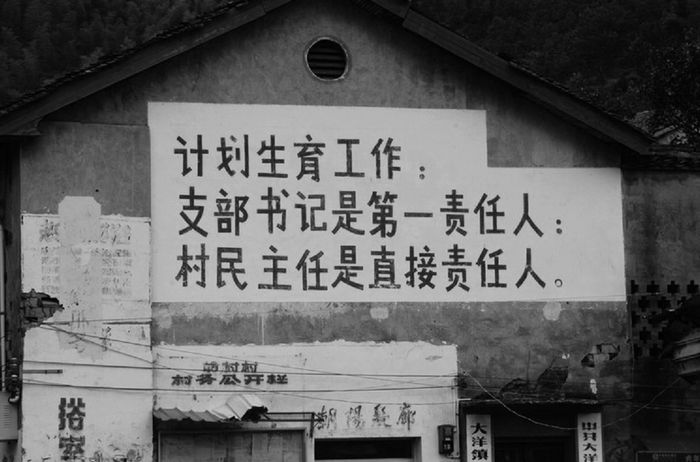 计划生育工作：
支部书记是第一责任人：
村民主任是直接责任人。
村务公开栏
朝陽髮廊
搭
大洋镇